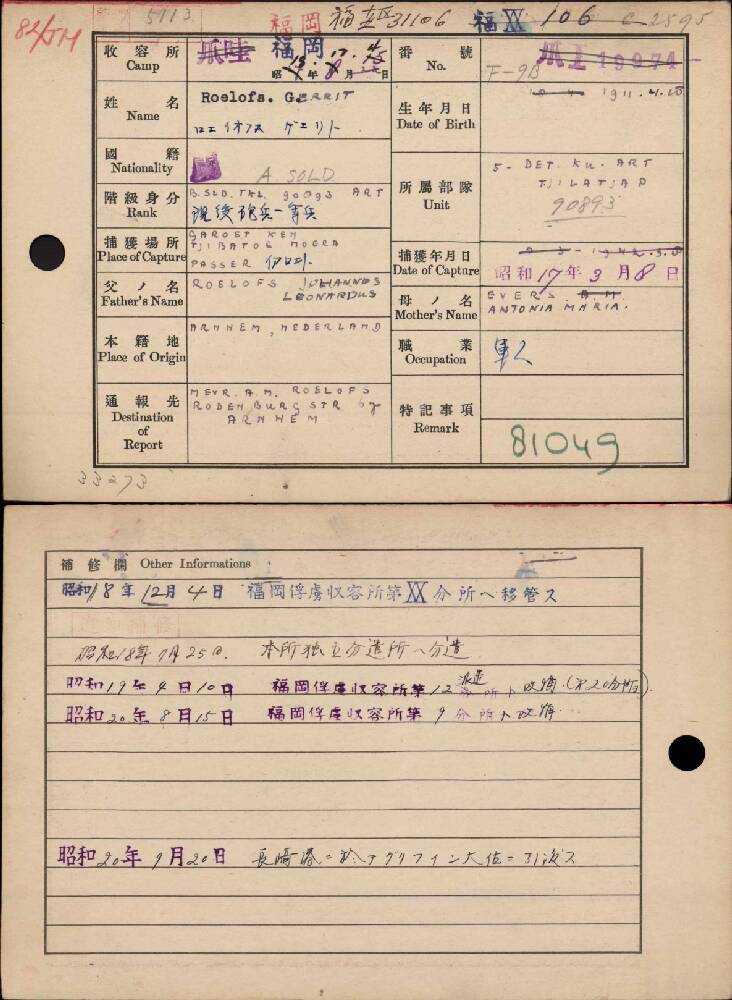 82/JM
5113
福岡
31106
福 XX 106
C 2595
収容所 Camp
爪哇 福岡
昭 年 8 月 日
番號 No.
爪I 19974
F-9B
姓名 Name
Roelofs. GERRIT
生年月日 Date of Birth
1911.4.20
國籍 Nationality
A. SOLD
階級身分 Rank
B.SLD.TAL. 90093 ART
所属部隊 Unit
5- DET. KU. ART
TJILATJAP
90893
捕獲場所 Place of Capture
GAROET KEN
TJIBATOE MOERA
PASSER
捕獲年月日 Date of Capture
昭和17年3月8日
父ノ名 Father's Name
ROELOFS JOHANNES
LEONARDUS
母ノ名 Mother's Name
EVERS. A.M.
ANTONIA MARIA.
本籍地 Place of Origin
ARNHEM, NEDERLAND
職業 Occupation
軍人
通報先 Destination of Report
MEVR. A.M. ROELOFS
RODENBURGSTR 67
ARNHEM
特記事項 Remark
81049
33273
補修欄 Other Informations
昭和18年12月4日 福岡俘虜収容所第XX分所へ移管ス
本所独立分遣所へ分遣
昭和19年4月10日 福岡俘虜収容所第12分所ト改稱
昭和20年8月15日 福岡俘虜収容所第9分所ト改稱
昭和20年9月20日 長崎港ニ於テグリフイン大佐ニ引渡ス